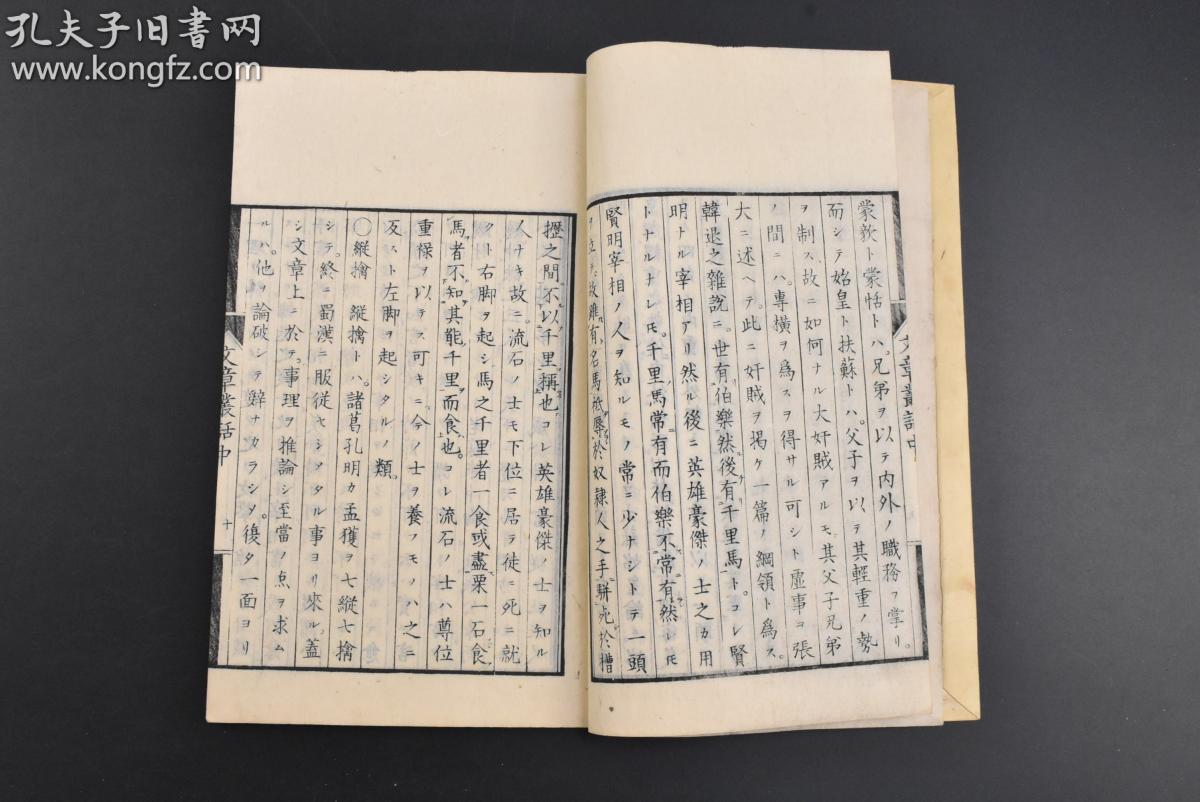 孔夫子旧书网
www.kongfz.com
蒙敘ト蒙恬トハ。兄弟ヲ以テ内外ノ職務ヲ掌リ。
而シテ始皇ト扶蘇トハ。父子ヲ以テ其輕重ノ勢
ヲ制ス。故ニ如何ナル大奸賊アルモ。其父子兄弟
ノ間ニハ。專横ヲ爲スヲ得サル可シト虚事ヲ張
大ニ述ヘテ。此ニ奸賊ヲ揭ケ一篇ノ綱領ト爲ス。
韓退之雜説ニ。世有伯樂然後有千里馬ト。コレ賢
明ナル宰相アリ然ル後ニ英雄豪傑ノ士之カ用
トナルナレモ。千里馬常有而伯樂不常有然レモ
賢明宰相ノ人ヲ知ルモノ常ニ少ナシトテ一頭
故雖有名馬祗辱於奴隷人之手駢死於槽
櫪之間不以千里稱也コレ英雄豪傑ノ士ヲ知ル
人ナキ故ニ。流石ノ士モ下位ニ居テ徒ニ死ニ就
クト右脚ヲ起シ馬之千里者一食或盡粟一石食
馬者不知其能千里而食也。コレ流石ノ士ハ尊位
重祿ヲ以テス可キニ。今ノ士ヲ養フモノハ之ニ
反スト左脚ヲ起シタルノ類。
○縱擒 縱擒トハ。諸葛孔明カ孟獲ヲ七縱七擒
シテ。終ニ蜀漢ニ服從セシメタル事ヨリ來ル。蓋
シ文章上ニ於テ。事理ヲ推論シ至當ノ点ヲ求ム
ルハ。他ヲ論破シテ辭ナカラシメ。復タ一面ヨリ
文章叢話中
十
文章叢話中